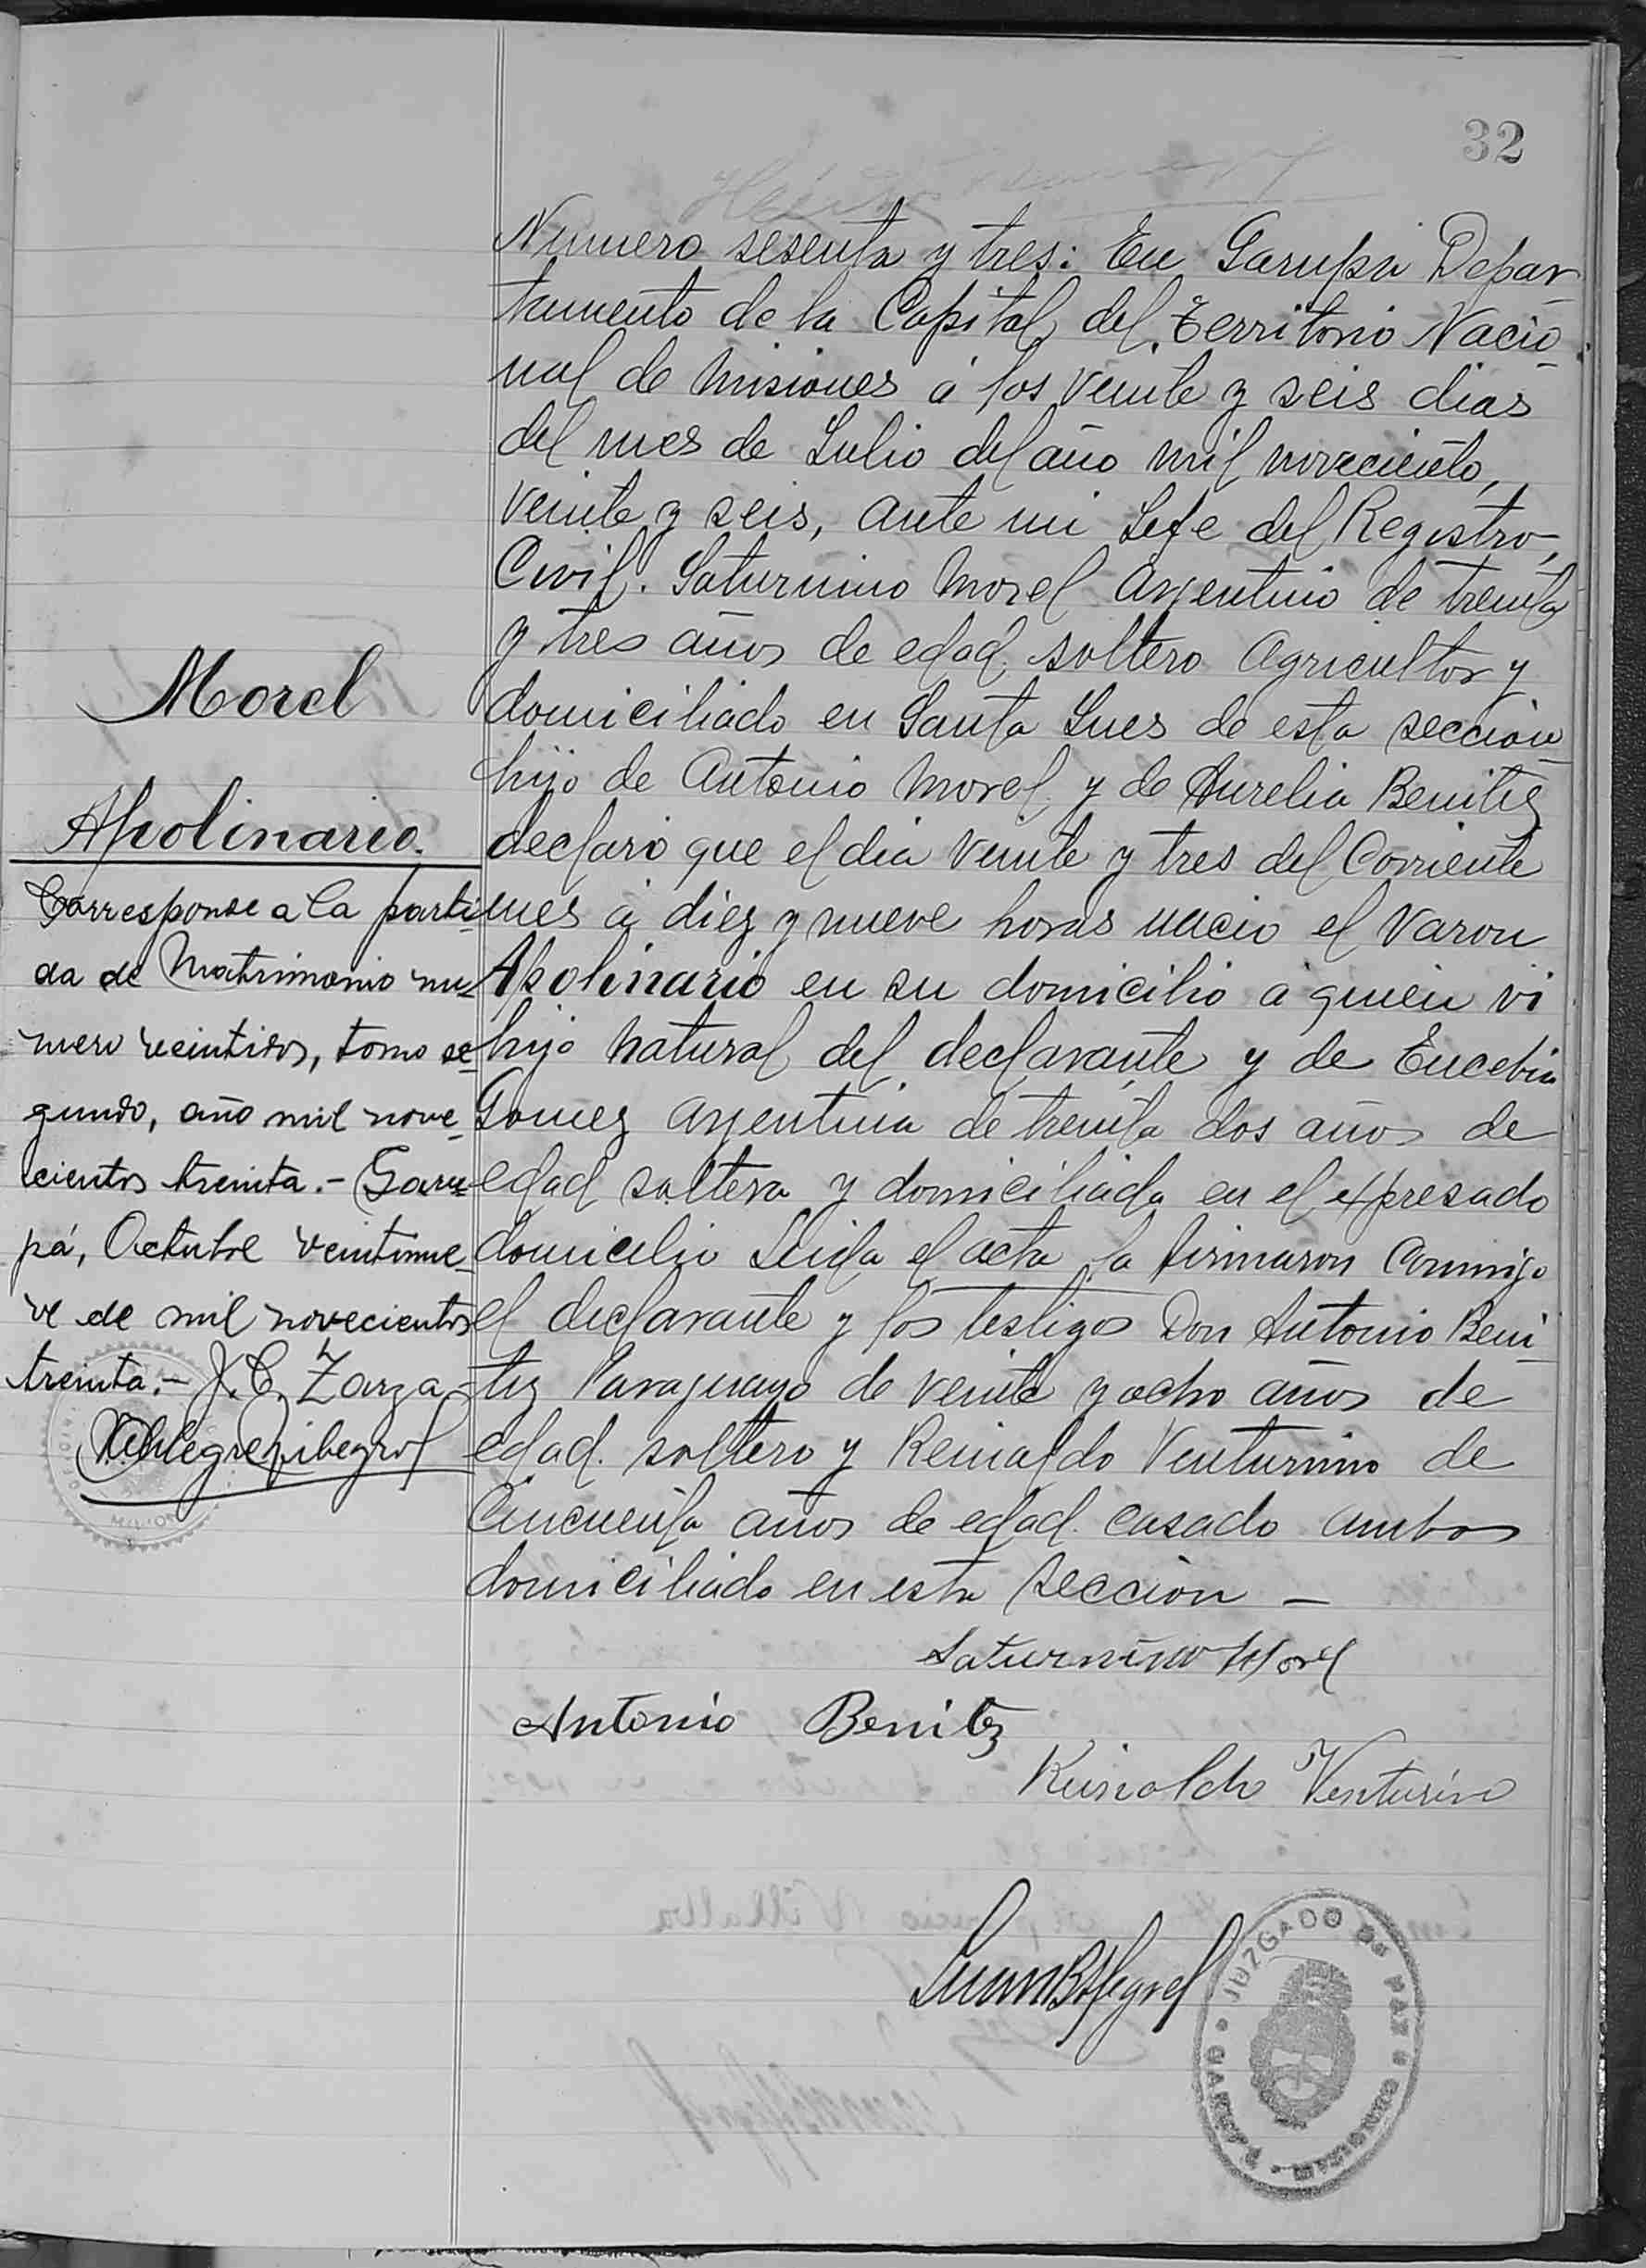 32
Numero sesenta y tres: En Garupa Depar
tamento de la Capital, del Territorio Nacio
nal de Misiones á los veinte y seis dias
del mes de Julio del año mil noveciento,
veinte y seis, ante mi Jefe del Registro,
Civil. Saturnino Morel Argentino de treinta
y tres años de edad, soltero Agricultor y
domiciliado en Santa Ines de esta sección
hijo de Antonio Morel, y de Aurelia Benitez
declaró que el dia veinte y tres del Corriente
mes á diez y nueve horas nacio el varon
Apolinario en su domicilio á quien vi
hijo natural del declarante y de Eucebia
Gomez Argentina de treinta dos años de
edad soltera y domiciliada en el expresado
domicilio Leida el acta la firmaron Conmigo
el declarante y los testigos Don Antonio Beni
tez Paraguayo de veinte y ocho años de
edad. soltero y Reinaldo Venturino de
Cincuenta años de edad. casado ambos
domiciliado en esta Sección —
Morel
Apolinario.
Corresponde a la parti-
da de Matrimonio nu-
mero veintidos, tomo se-
gundo, año mil nove-
cientos treinta.- Garu-
pá, Octubre veintinue-
ve de mil novecientos
treinta.- J. C. Zarza
Saturnino Morel
Antonio Benitez
Reinaldo Venturino
JUZGADO DE PAZ
GARUPA